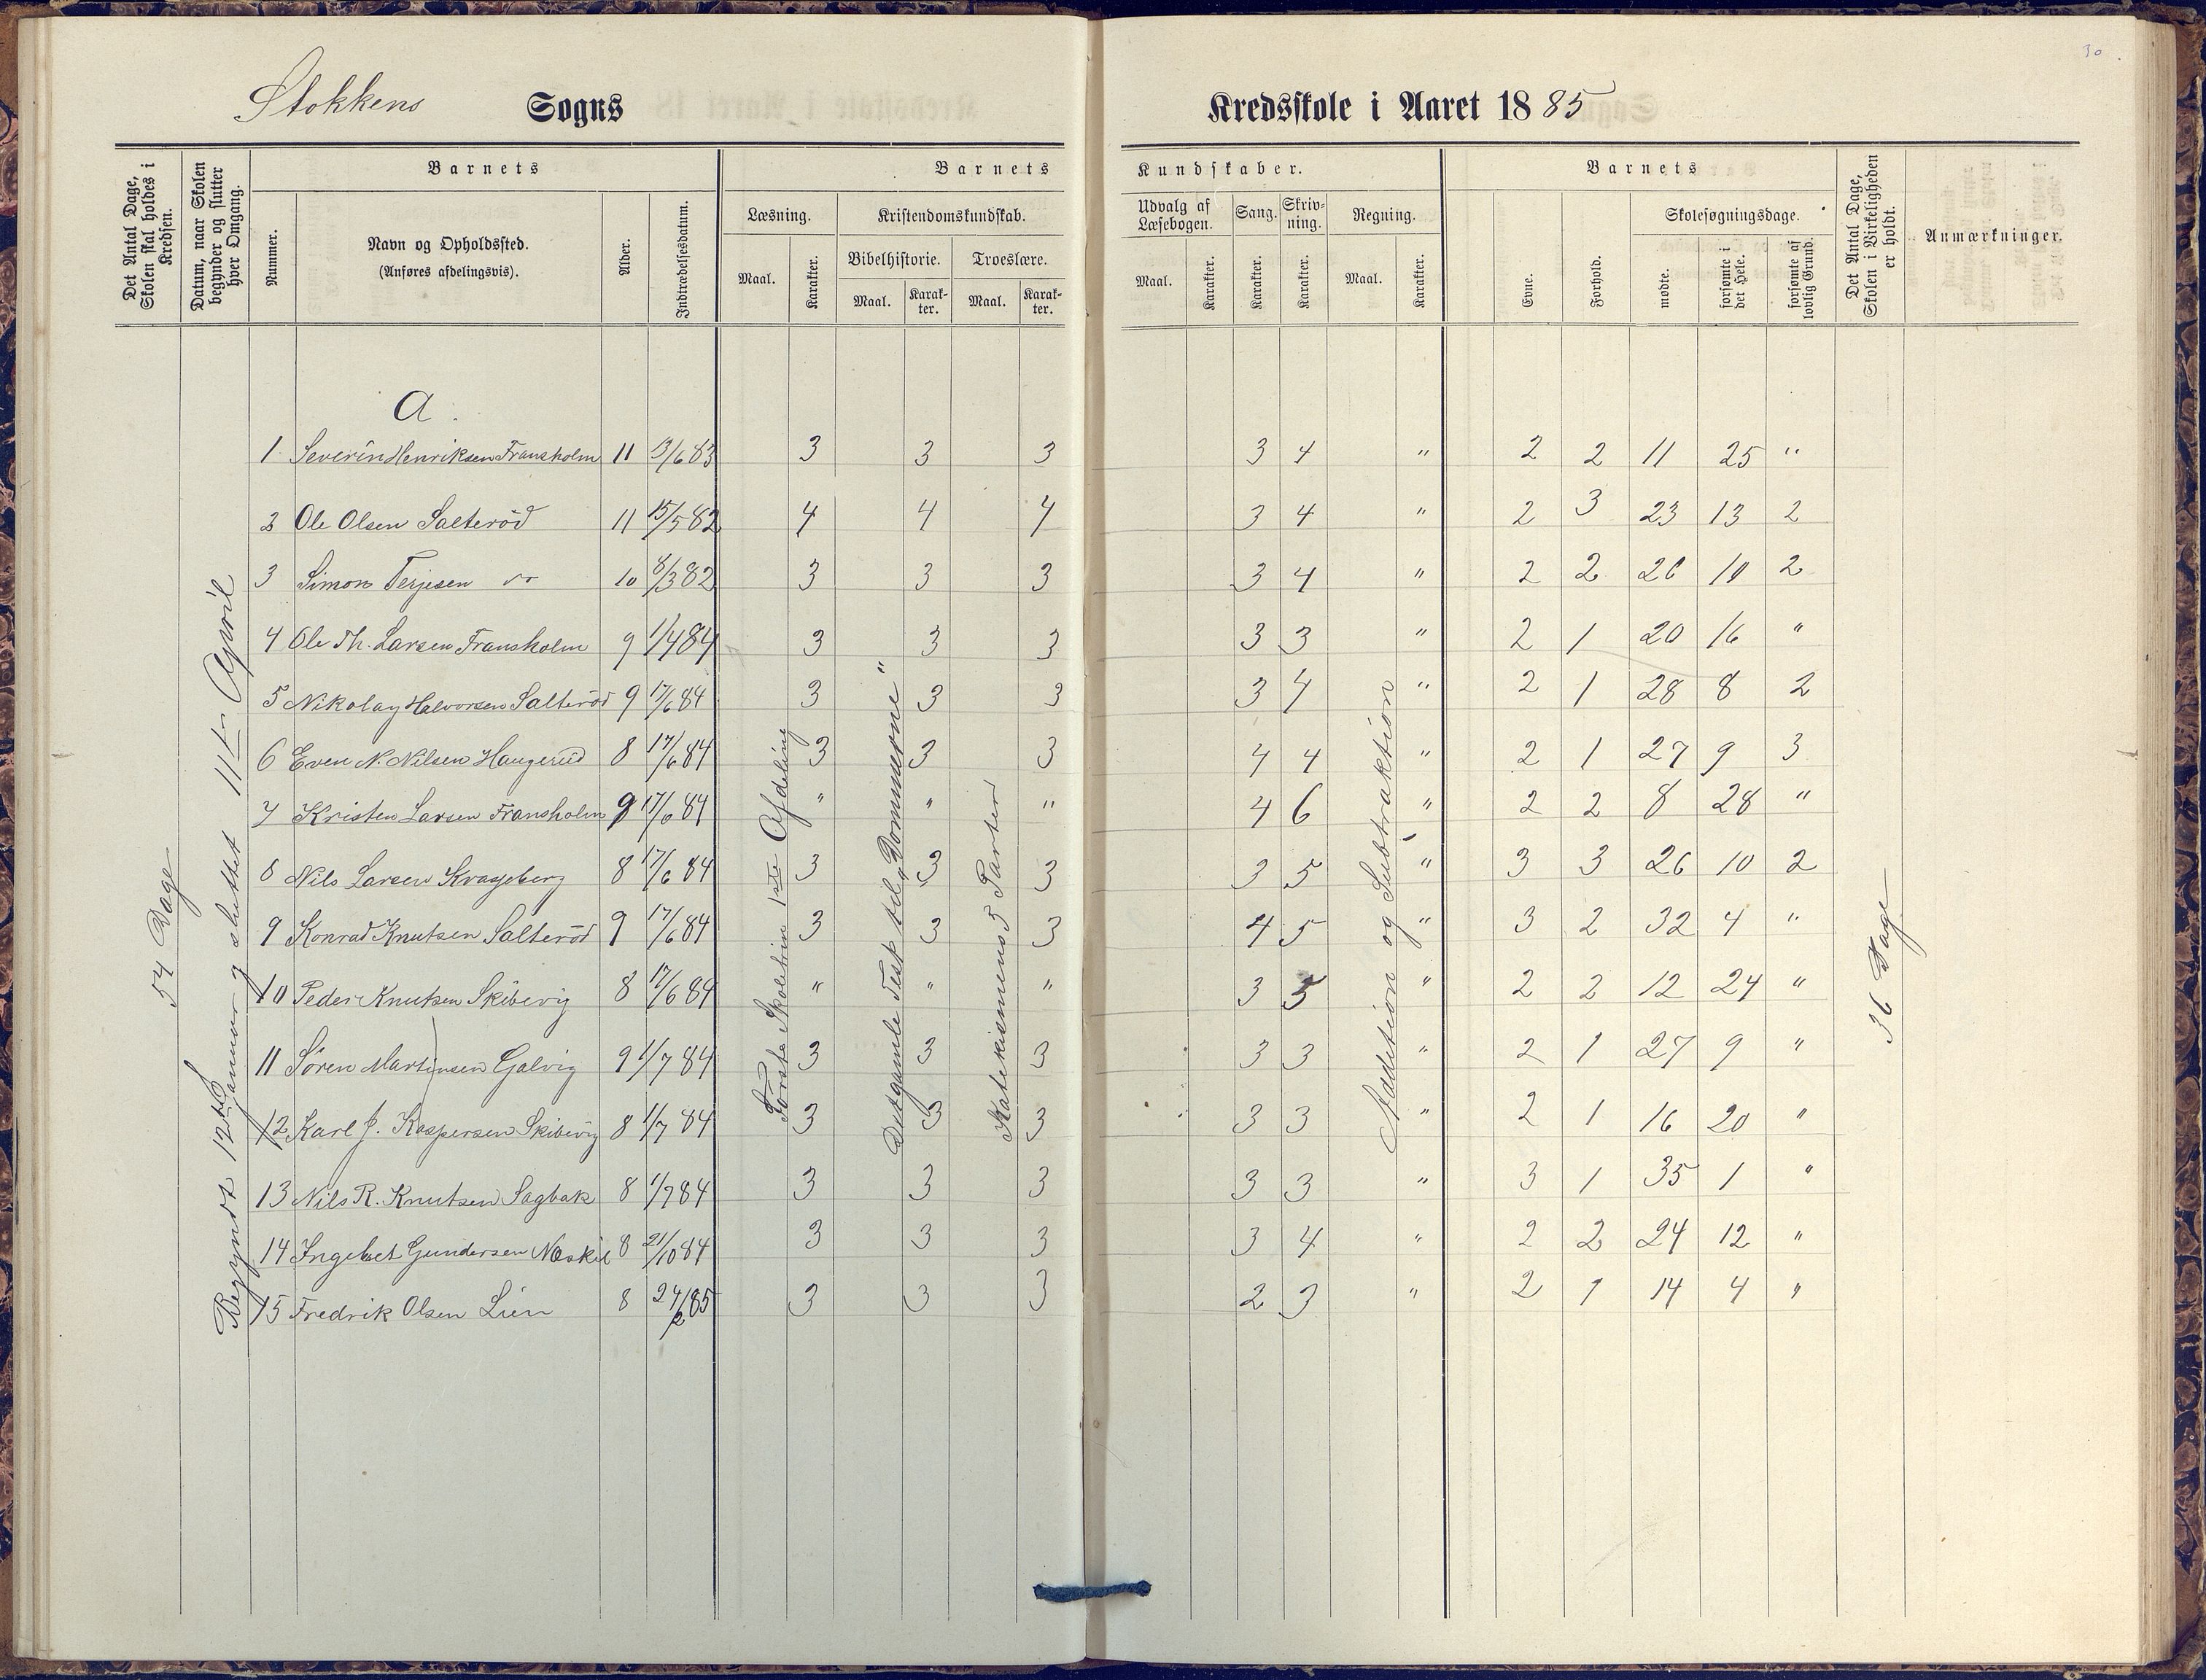 30
Stokkens Sogns Kredsskole i Aaret 1885
Det Antal Dage, Skolen skal holdes i Kredsen.
Datum, naar Skolen begynder og slutter hver Omgang.
Barnets
Nummer.
Navn og Opholdssted.
(Anføres afdelingsvis).
Alder.
Indtrædelsesdatum.
Barnets Kundskaber.
Læsning.
Maal. Karakter.
Kristendomskundskab.
Bibelhistorie. Troeslære.
Maal. Karakter. Maal. Karakter.
Udvalg af Læsebogen.
Maal. Karakter.
Sang. Karakter.
Skrivning. Karakter.
Regning.
Maal. Karakter.
Barnets
Evne. Forhold.
Skolesøgningsdage.
mødte. forsømte i det Hele. forsømte af lovlig Grund.
Det Antal Dage, Skolen i Virkeligheden er holdt.
Anmærkninger.
54 Dage
Begyndt 12te Januar og sluttet 11te April
A.
1 Severin Henriksen Fransholm 11 13/6 83 3 3 3 3 4 " 2 2 11 25 "
2 Ole Olsen Salteröd 11 15/5 82 4 4 4 3 4 " 2 3 23 13 2
3 Simon Terjesen do 10 8/3 82 3 3 3 3 4 " 2 2 26 10 2
4 Ole Th. Larsen Fransholm 9 1/4 84 3 3 3 3 3 " 2 1 20 16 "
5 Nikolay Halvorsen Salteröd 9 17/6 84 3 3 3 3 4 " 2 1 28 8 2
6 Even N. Nilsen Haugerud 8 17/6 84 3 3 3 4 4 " 2 1 27 9 3
7 Kristen Larsen Fransholm 9 17/6 84 " " " 4 6 " 2 2 8 28 "
8 Nils Larsen Kvageberg 8 17/6 84 3 3 3 3 5 " 3 3 26 10 2
9 Konrad Knutsen Salteröd 9 17/6 84 3 3 3 4 5 " 3 2 32 4 "
10 Peder Knutsen Skibevig 8 17/6 84 " " " 3 5 " 2 2 12 24 "
11 Sören Martinsen Galvig 9 1/7 84 3 3 3 3 3 " 2 1 27 9 "
12 Karl J. Kaspersen Skibevig 8 1/7 84 3 3 3 3 3 " 2 1 16 20 "
13 Nils R. Knutsen Sagbak 8 1/7 84 3 3 3 3 3 " 3 1 35 1 "
14 Ingebret Gundersen Næskil 8 21/10 84 3 3 3 3 4 " 2 2 24 12 "
15 Fredrik Olsen Lien 8 24/2 85 3 3 3 2 3 " 2 1 14 4 "
Første Skoletrin 1ste Afdeling
Det gamle Test. til "Dommerne"
Katekismens 5 Parter
Addition og Subtraktion
36 Dage